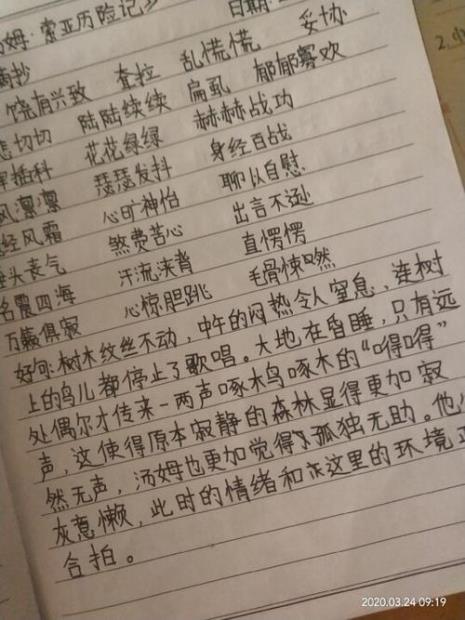 姆·索亚历险记》 日期:
摘抄
饶有兴致 耷拉 乱慌慌 妥协
悲切切 陆陆续续 扁虱 郁郁寡欢
插科 花花绿绿 赫赫战功
风凛凛 瑟瑟发抖 身经百战
经风霜 心旷神怡 聊以自慰
垂头丧气 煞费苦心 出言不逊
名震四海 汗流浃背 直愣愣
万籁俱寂 心惊胆跳 毛骨悚然
好句:树木纹丝不动,中午的闷热令人窒息,连树
上的鸟儿都停止了歌唱。大地在昏睡,只有远
处偶尔才传来一两声啄木鸟啄木的“嘚嘚”
声,这使得原本寂静的森林显得更加寂
然无声,汤姆也更加觉得孤独无助。他
灰意懒,此时的情绪和这里的环境正
合拍。
2.
2020.03.24 09:19